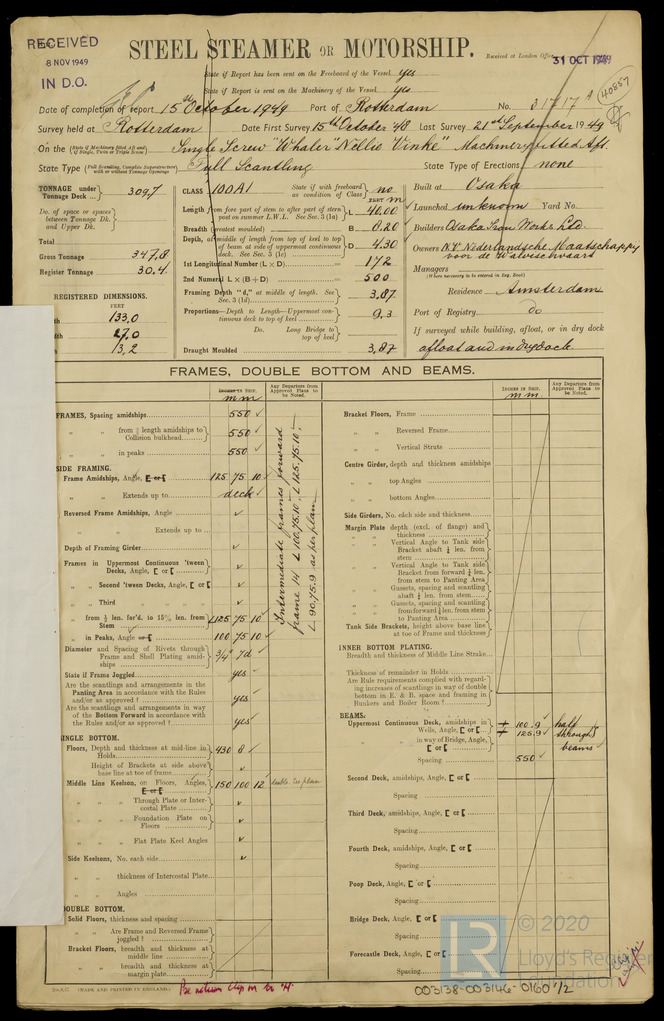 RECEIVED
8 NOV 1949
IN D.O.
STEEL STEAMER OR MOTORSHIP.
Received at London Office 31 OCT 1949
State if Report has been sent on the Freeboard of the Vessel yes
State if Report is sent on the Machinery of the Vessel yes
Date of completion of report 15th October 1949 Port of Rotterdam No. 31717A
40857
Survey held at Rotterdam Date First Survey 15th October '48 Last Survey 21st September 1949
On the (State if Machinery fitted Aft and if Single, Twin or Triple Screw) Single Screw "Whaler Nellie Vinke" Machinery fitted Aft
State Type (Full Scantling, Complete Superstructure with or without Tonnage Openings) Full Scantling State Type of Erections none
TONNAGE under Tonnage Deck ... 309.7
Do. of space or spaces between Tonnage Dk. and Upper Dk.
Total
Gross Tonnage 347.8
Register Tonnage 30.4
REGISTERED DIMENSIONS.
FEET
133.0
27.0
13.2
CLASS 100A1 State if with freeboard as condition of Class no
FEET m
Length from fore part of stem to after part of stern post on summer L.W.L. See Sec. 3 (1a) L 40.00
Breadth (greatest moulded) B 8.20
Depth, at middle of length from top of keel to top of beam at side of uppermost continuous deck. See Sec. 3 (1c) D 4.30
1st Longitudinal Number (L × D) = 172
2nd Numeral L × (B + D) = 500
Framing Depth "d," at middle of length. See Sec. 3 (1d) 3.87
Proportions—Depth to Length—Uppermost continuous deck to top of keel 9.3
Do. Long Bridge to top of keel
Draught Moulded 3.87
Built at Osaka
Launched unknown Yard No.
Builders Osaka Iron Works Ltd.
Owners N.V. Nederlandsche Maatschappy voor de Walvischvaart
Managers
(Where necessary to be entered in Reg. Book)
Residence Amsterdam
Port of Registry do
If surveyed while building, afloat, or in dry dock
afloat and in dry dock
FRAMES, DOUBLE BOTTOM AND BEAMS.
INCHES IN SHIP. m m
Any Departure from Approved Plans to be Noted.
FRAMES, Spacing amidships 550
" " from ⅗ length amidships to Collision bulkhead 550
" " in peaks 550
SIDE FRAMING.
Frame Amidships, Angle, [ or [ 125 75 10
" " Extends up to deck
Reversed Frame Amidships, Angle
" " Extends up to
Depth of Framing Girder
Frames in Uppermost Continuous 'tween Decks, Angle, [ or [
" " Second 'tween Decks, Angle, [ or [
" " Third
" " from ½ len. for'd. to 15% len. from Stem 125 75 10
" " in Peaks, Angle or [ 100 75 10
Diameter and Spacing of Rivets through Frame and Shell Plating amidships 3/4" 7d
State if Frame Joggled yes
Are the scantlings and arrangements in the Panting Area in accordance with the Rules and/or as approved ? yes
Are the scantlings and arrangements in way of the Bottom Forward in accordance with the Rules and/or as approved ? yes
Intermediate frames forward
frame 14 L 100.75.10; L 125.75.10;
L 90.75.9 as per plan
SINGLE BOTTOM.
Floors, Depth and thickness at mid-line in Holds 430 8
" Height of Brackets at side above base line at toe of frame
Middle Line Keelson, on Floors, Angles, [ or [ 150 100 12 double. See plan
" " " Through Plate or Intercostal Plate
" " " Foundation Plate on Floors
" " " Flat Plate Keel Angles
Side Keelsons, No. each side
" " thickness of Intercostal Plate
" " Angles
DOUBLE BOTTOM.
Solid Floors, thickness and spacing
" " Are Frame and Reversed Frame joggled ?
Bracket Floors, breadth and thickness at middle line
" " breadth and thickness at margin plate
INCHES IN SHIP. m m
Any Departure from Approved Plans to be Noted.
Bracket Floors, Frame
" " Reversed Frame
" " Vertical Struts
Centre Girder, depth and thickness amidships
" " top Angles
" " bottom Angles
Side Girders, No. each side and thickness
Margin Plate depth (excl. of flange) and thickness
" " Vertical Angle to Tank side Bracket abaft ¼ len. from stem
" " Vertical Angle to Tank side Bracket from forward ¼ len. from stem to Panting Area
" " Gussets, spacing and scantling abaft ¼ len. from stem
" " Gussets, spacing and scantling from forward ¼ len. from stem to Panting Area
Tank Side Brackets, height above base line at toe of Frame and thickness
INNER BOTTOM PLATING.
Breadth and thickness of Middle Line Strake
Thickness of remainder in Holds
Are Rule requirements complied with regarding increases of scantlings in way of double bottom in E. & B. space and framing in Bunkers and Boiler Room ?
BEAMS.
Uppermost Continuous Deck, amidships in Wells, Angle, [ or [ 100.9 half
" " in way of Bridge, Angle, [ or [ 125.9 through beams
" " Spacing 550
Second Deck, amidships, Angle, [ or [
Spacing
Third Deck, amidships, Angle, [ or [
Spacing
Fourth Deck, amidships, Angle, [ or [
Spacing
Poop Deck, Angle, [ or [
Spacing
Bridge Deck, Angle, [ or [
Spacing
Forecastle Deck, Angle, [ or [
Spacing
(MADE AND PRINTED IN ENGLAND.)
003138-003146-0160 1/2
© 2020
Lloyd's Register
Foundation